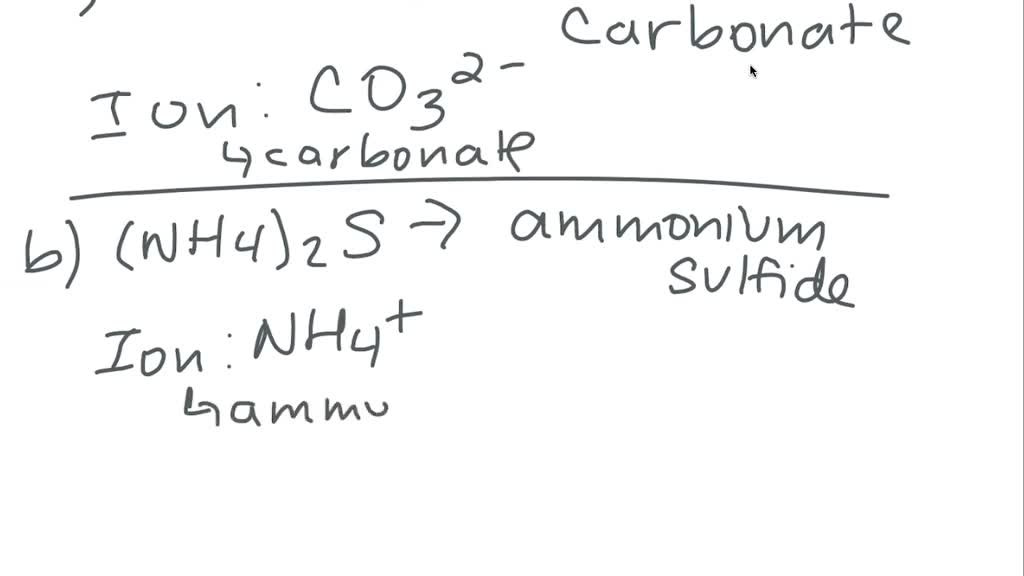 Carbonate
Ion: CO3 2-
↳ carbonate
b) (NH4)2S → ammonium
sulfide
Ion: NH4+
↳ ammo